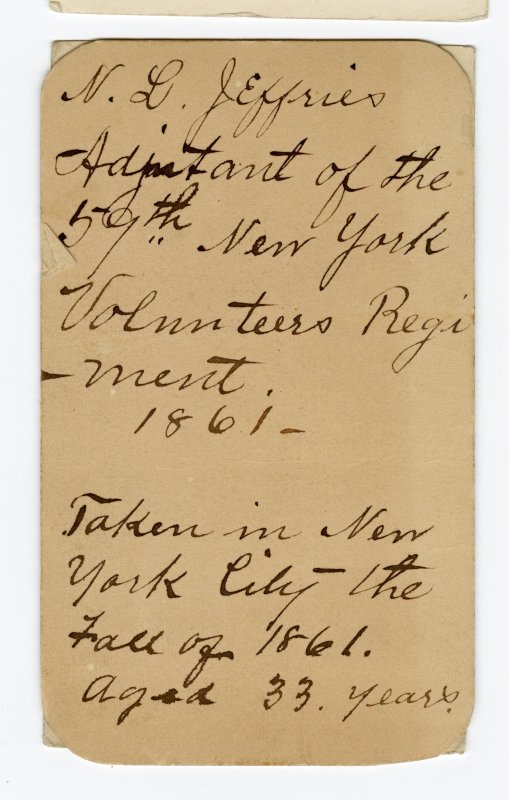 N. L. Jeffries
Adjutant of the
59th New York
Volunteers Regi
-ment.
1861-
Taken in New
York City the
Fall of 1861.
Aged 33. years.